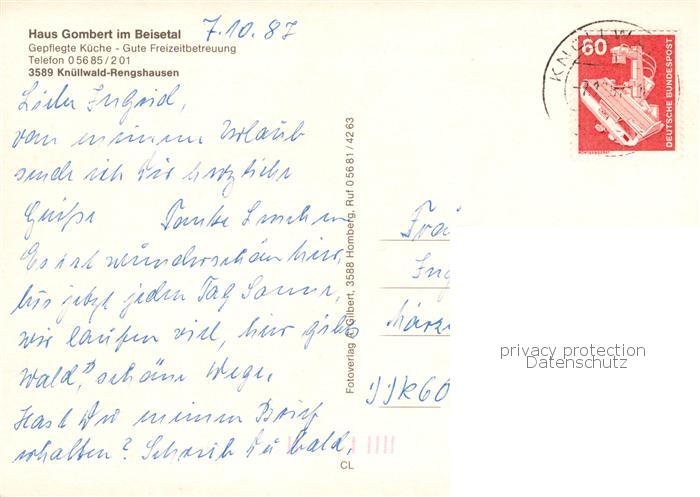 Haus Gombert im Beisetal
Gepflegte Küche - Gute Freizeitbetreuung
Telefon 0 56 85 / 2 01
3589 Knüllwald-Rengshausen
7.10.87
Liebe Ingrid,
von meinem Urlaub
sende ich Dir herzliche
Grüße Tante
Es ist wunderschön hier,
bis jetzt jeden Tag Sonne,
wir laufen viel, hier gibts
Wald, schöne Wege,
Hast Du meinen Brief
erhalten? Schreib Du bald,
Fotoverlag A. Gilbert, 3588 Homberg, Ruf 0 56 81 / 42 63
CL
60
DEUTSCHE BUNDESPOST
RÖNTGENGERÄT
KNÜLLW
Ing
privacy protection
Datenschutz